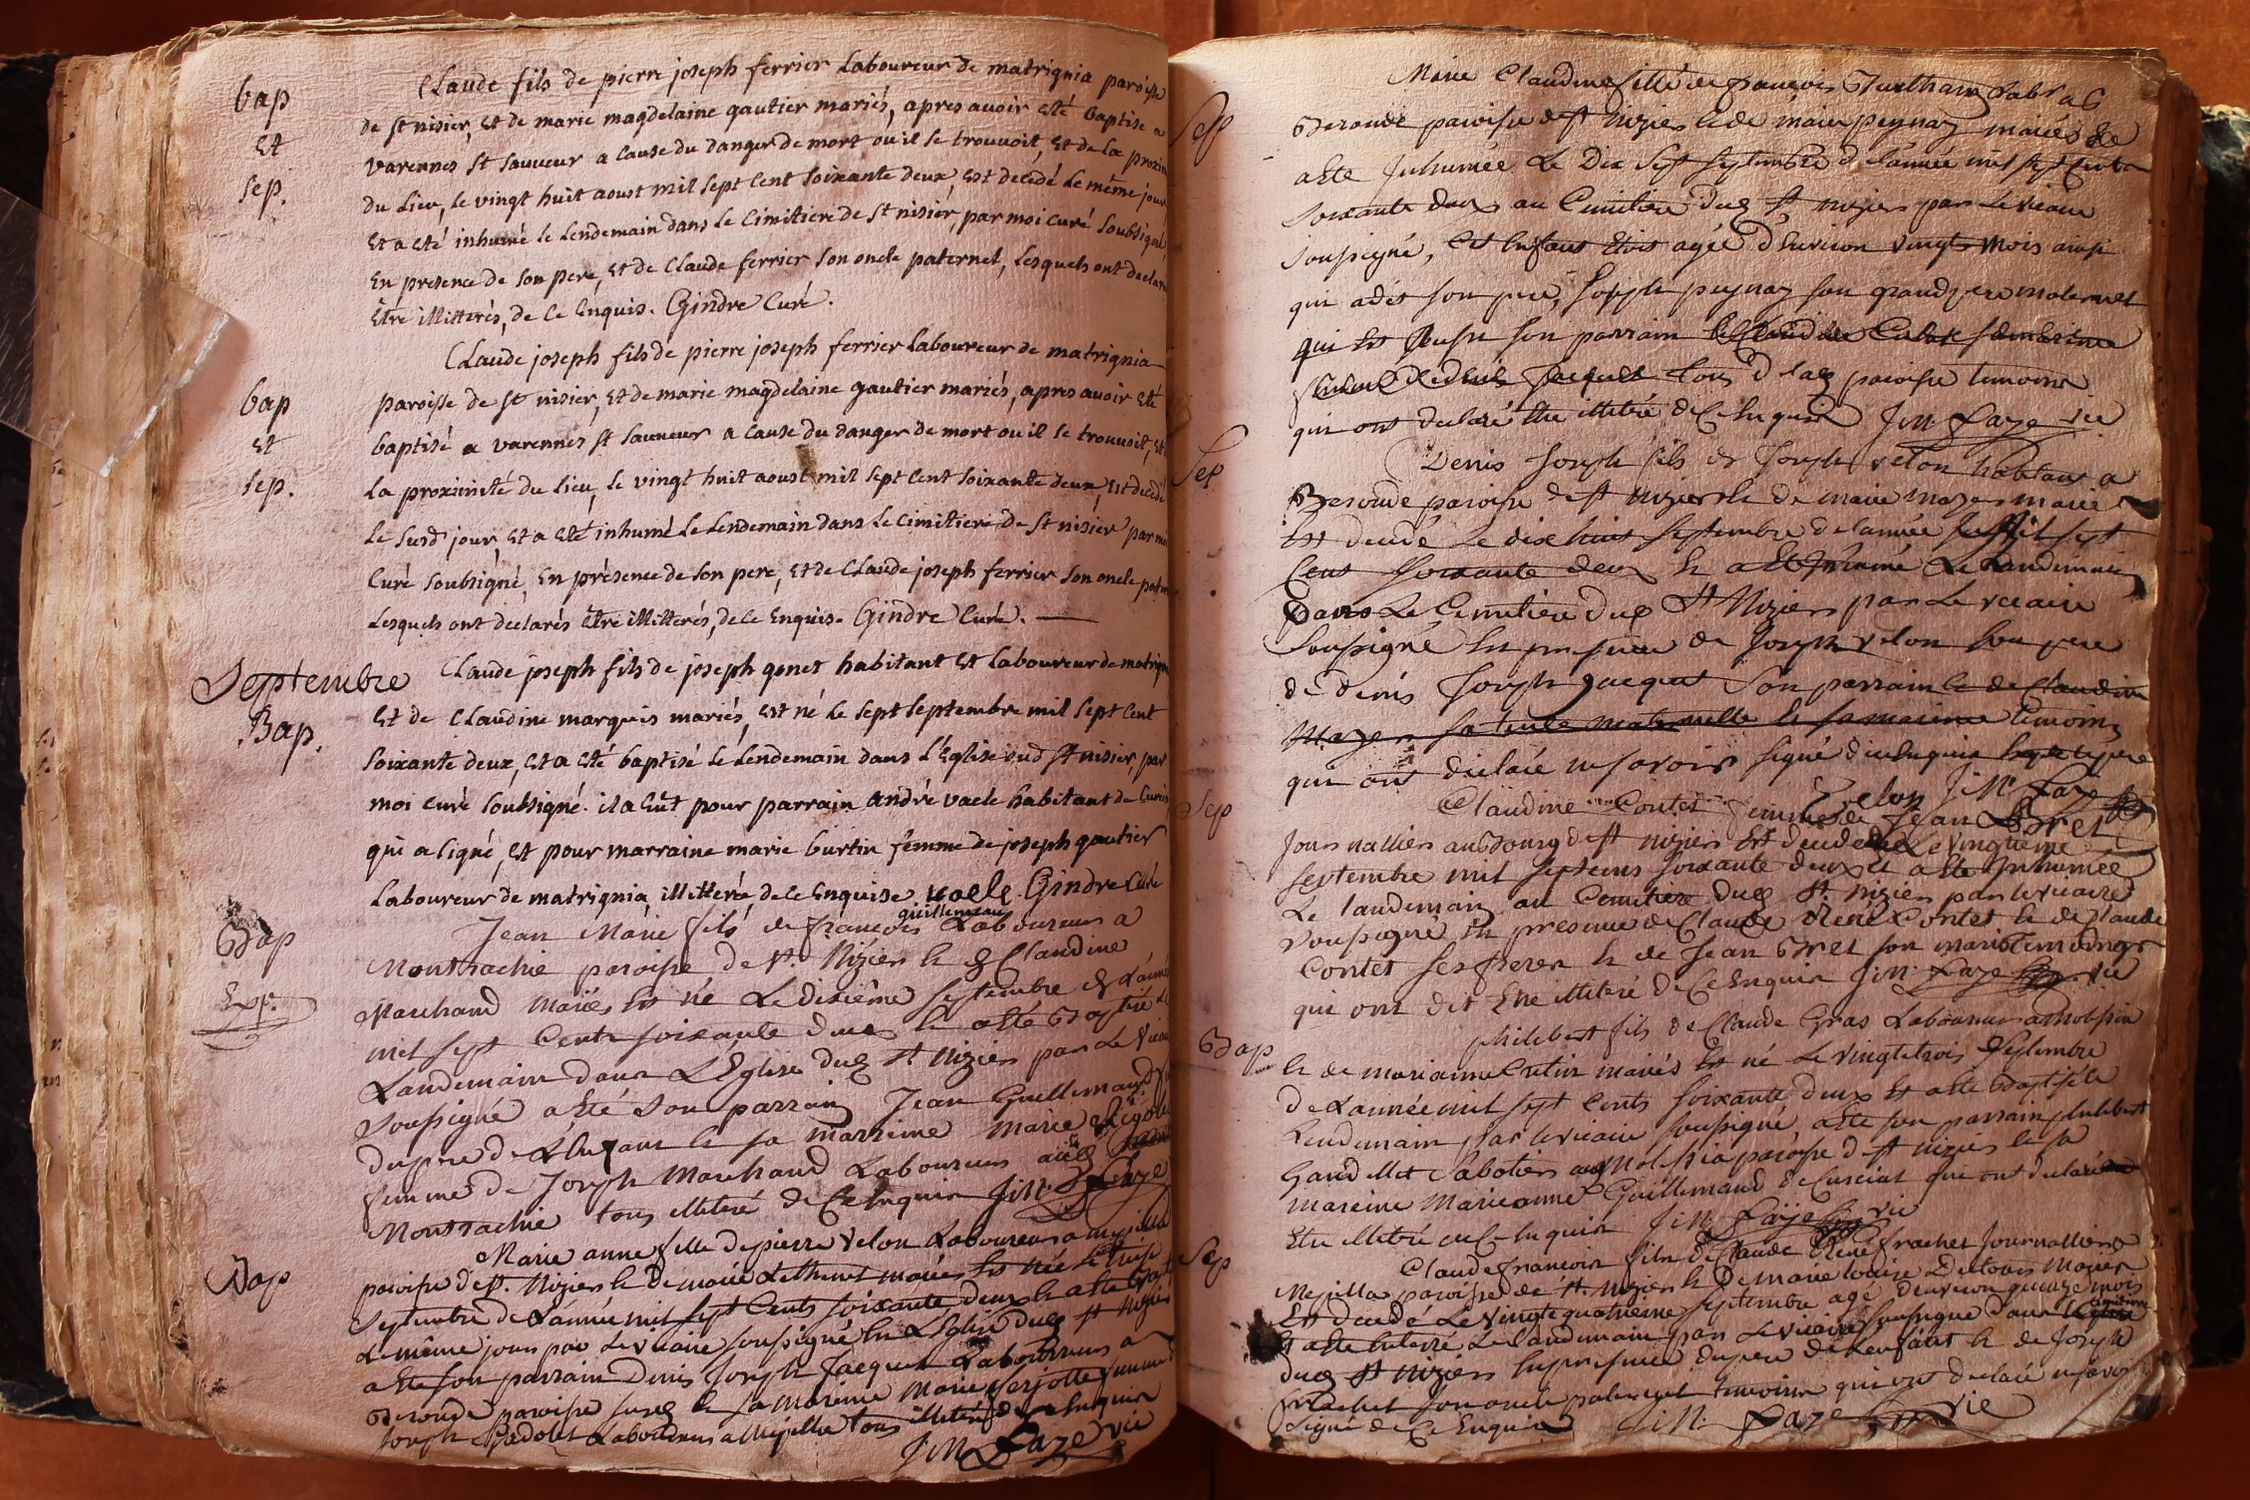 bap
et
sep.
Claude fils de pierre joseph ferrier Laboureur de matrignia paroisse
de st nisier, et de marie magdelaine gautier mariés, apres avoir eté baptisé a
varennes st sauveur a cause du danger de mort ou il se trouvoit, et de la proxim
du Lieu, le vingt huit aoust mil sept cent soixante deux, est decedé le même jour,
et a eté inhumé le Lendemain dans le cimitiere de st nisier, par moi curé soubsigné,
en presence de son pere, et de claude ferrier son oncle paternel, lesquels ont declaré
être illitterés, de ce enquis. Gindre Curé.
bap
et
sep.
Claude joseph fils de pierre joseph ferrier Laboureur de matrignia
paroisse de st nisier, et de marie magdelaine gautier mariés, apres avoir eté
baptisé a varennes st sauveur a cause du danger de mort ou il se trouvoit, et
la proximité du Lieu, le vingt huit aoust mil sept cent soixante deux, est decedé
le susd jour, et a eté inhumé le Lendemain dans le cimitiere de st nisier par moi
Curé soubsigné, en présence de son pere, et de Claude joseph ferrier son oncle patern
Lesquels ont declarés être illitterés, de ce enquis. Gindre Curé.
Septembre
Bap.
Claude joseph fils de joseph gonet habitant et laboureur de matrigni
et de Claudine marquis mariés, est né le sept septembre mil sept cent
soixante deux, et a eté baptisé le Lendemain dans L'Eglise dud st nisier, par
moi curé soubsigné. il a eût pour parrain andré vaele habitant de
qui a signé, et pour marraine marie burtin femme de joseph gautier
Laboureur de matrignia, illitterée de ce enquise. vaele. Gindre Curé
Bap
Exp.
guillemaud
Jean Marie fils de françois Laboureur a
Montrachie paroisse de st. Nizier & de Claudine
Marchand mariés est né Le dixiême septembre de L'anné
mil sept Cents soixante deux & a esté Baptisé Le
Landemain dans L'Eglise dud st Nizier par Le vicai
soussigné a esté son parrain Jean Guillemaud
du pere de L'enfant & sa marreine Marie
femme de Joseph Marchand Laboureur
Montrachie tous illiteré de Ce Enquis J: M: Faye
Bap
Marie anne fille de pierre velon Laboureur a mepilla
paroisse de st. Nizier & de marie mariés est née Le
septembre de L'année mil sept Cents soixante deux & a esté bapt
Le même jour par Le vicaire soussigné en L'Eglise dud st Nizier
a esté son parrain Denis Joseph Jacquet Laboureur a
Beronde paroisse susd & sa mareine Marie femme
Joseph Laboureur a Mepilla tous illiteré de Ce enquis
J: M: Faye vic
Sep
Marie Claudine fille de francois Lab a
Beronde paroisse de st Nizier & de marie peynaz mariés
a esté Inhumée Le Dix Sept septembre de L'année mil sept Cents
soixante deux au Cimitiere dud st nizier par Le vicaire
soussigné, Cet Enfant etoit agée d'Environ vingts mois ainsi
qui a dit son pere, Joseph peynaz son grand pere maternel
qui est aussi son parrain
tous de lad paroisse temoins
qui ont declaré etre illitéré de Ce Enquis J: M: Faye vic
Sep
Denis Joseph fils de Joseph velon habitant a
Beronde paroisse de st nizier & de marie mazer marié
Est decedé Le dixhuit septembre de L'année Mil sept
Cens soixante deux & a esté Inhumé Le Landemain
Dans Le Cimitiere dud st Nizier par Le vicaire
Soussigné En presence de Joseph velon son pere
de denis Joseph jacquet Son parrain & de Claudine
Mazer sa tante maternelle & sa mareine temoins
qui ont declaré ne savoir signé de ce enquis
velon J: M: Faye
Sep
Claudine Contet femme de Jean Bret
Journallier au Bourg de st nizier Est decedée Le vingtieme
septembre mil septcens soixante deux & a esté Inhumée
Le landemain au Cimitiere dud st. nizier par le vicaire
soussigné En presence de Claude René Contet & de Claude
Contet ses freres & de Jean Bret son mari temoings
qui ont dit Etre illiteré de Ce Enquis J: M: Faye vic
Bap
philibert fils de Claude Gras Laboureur a
& de marianne Cretin mariés Est né Le vingtetrois septembre
De L'année mil sept Cents soixante deux Et a esté Baptisé le
Lendemain par le vicaire soussigné a esté son parrain philibert
Gandillet sabotier au paroisse de st nizier & sa
mareine Marieanne Guillemaud de Cuisiat qui ont declaré
Etre illitéré de Ce Enquis J: M: Faye vic
Sep
Claude francois fils de Claude René frachet Journallier
Mepilla paroisse de st. nizier & De marie louise mariés
Est decedé Le vingtequatrieme septembre agé d'environ quinze mois
& a esté Enterré Le Landemain par Le vicaire soussigné dans le cimitiere
dud st nizier En presence du pere de L'enfant & de Joseph
frachet son oncle paternel temoins qui ont declaré ne savoir
signé de Ce Enquis J: M: Faye vic